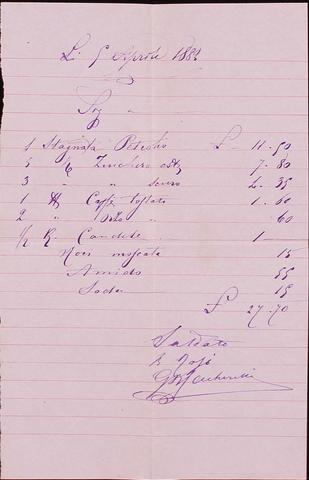 Li 5 Aprile 1882
Sig
1 Stagnata Petrolio £ 11.50
6 K Zucchero 7.80
3 " " scuro 4.35
1 K Caffè tostato 1.60
2 " Orzo " 60
1/2 K Candele 1 —
Noci moscata 15
Amido 55
Soda 15
£ 27.70
Saldato